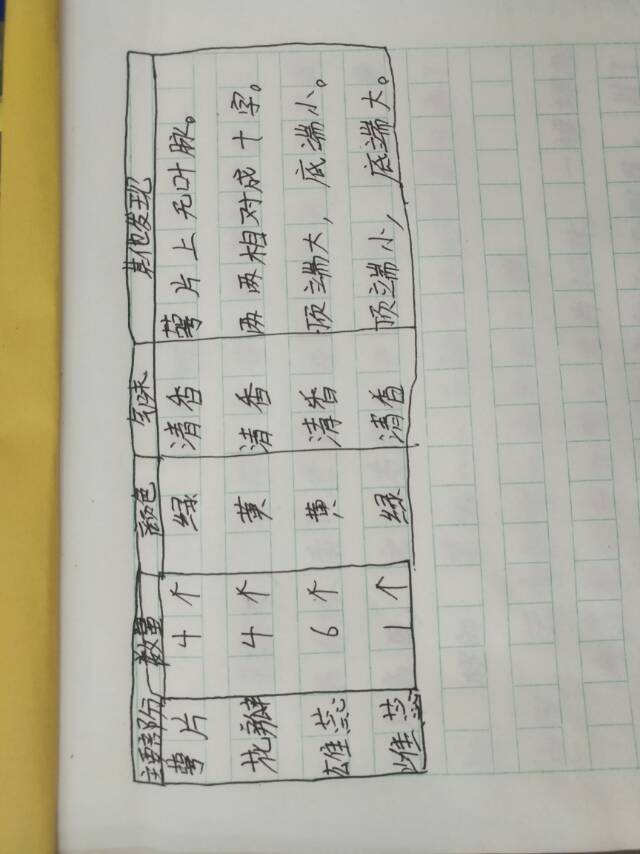 主要部分 数量 颜色 气味 其他发现
萼片 4个 绿 清香 萼片上无叶脉。
花瓣 4个 黄 清香 两两相对成十字。
雄蕊 6个 黄 清香 顶端大，底端小。
雌蕊 1个 绿 清香 顶端小，底端大。